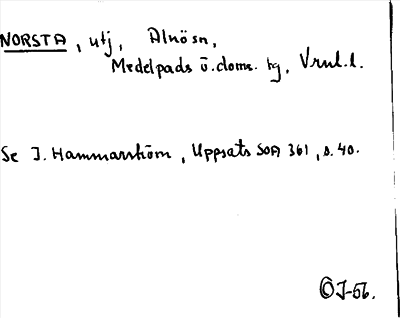 NORSTA, utj, Alnö sn,
Medelpads ö. doms. tg, Vrnl.l.
Se J. Hammarström, Uppsats SOA 361, s. 40.
ÖJ-56.